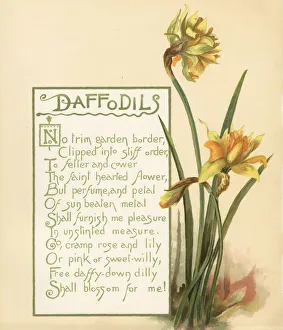 DAFFODILS
No trim garden border,
Clipped into stiff order,
To fetter and cower
The faint hearted flower,
But perfume, and petal
Of sun beaten metal
Shall furnish me pleasure
In unstinted measure.
Go, cramp rose and lily
Or pink or sweet-willy,
Free daffy-down dilly
Shall blossom for me!